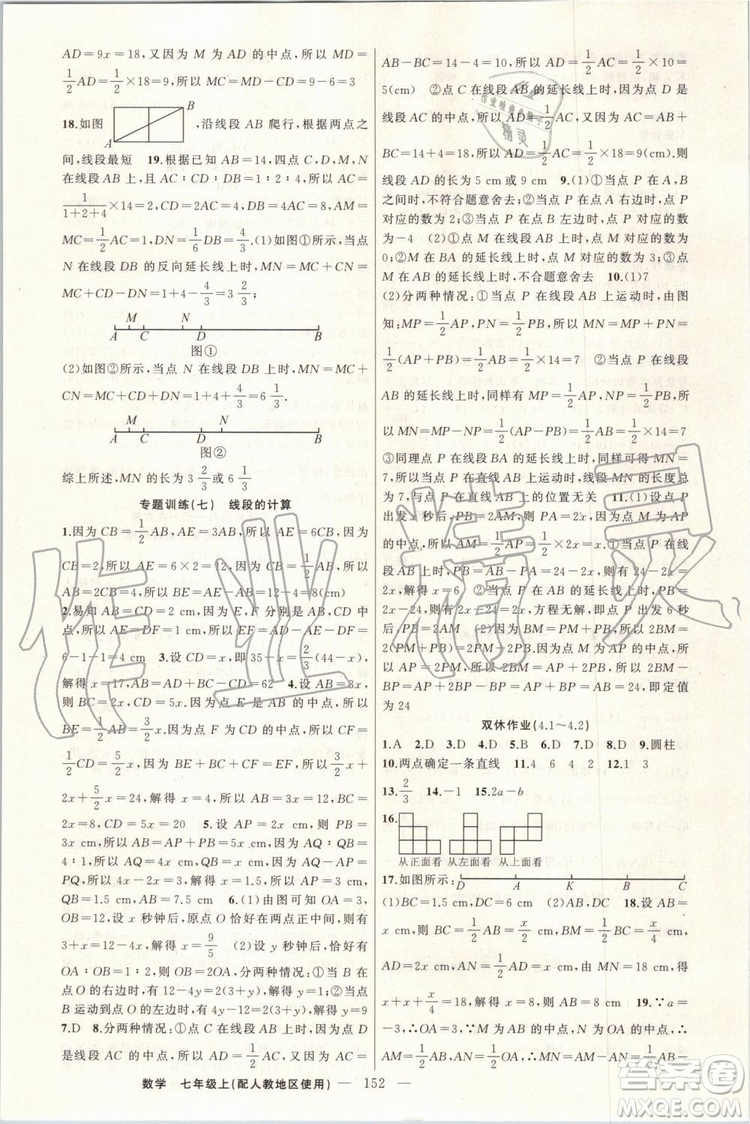 AD=9x=18,又因为 M 为 AD 的中点,所以 MD=
1/2 AD=1/2×18=9,所以 MC=MD-CD=9-6=3
18.如图 A B ,沿线段 AB 爬行,根据两点之
间,线段最短 19.根据已知 AB=14,四点 C,D,M,N
在线段 AB 上,且 AC∶CD∶DB=1∶2∶4,所以 AC=
1/(1+2+4)×14=2,CD=4,DB=8,M 为 AC 的中点,所以
MC=1/2 AC=1,DN=1/4 DB=4/3.(1)如图①所示,当点
N 在线段 DB 的反向延长线上时,MN=MC+CD-
DN=1+4-4/3=3 2/3;
A C N D B
图①
(2)如图②所示,当点 N 在线段 DB 上时,MN=
MC+CD+DN=1+4+4/3=6 1/3.
A C D N B
图②
综上所述,MN 的长为 3 2/3 或 6 1/3
专题训练(七) 线段的计算
1.因为 CB=1/2 AB,AE=3AB,所以 AE=6CB,因为
CB=2,所以 AE=6×2=12,所以 CE=AE-
AB+CB=12-4+2=8,AE=12-4=8(cm)
2.易知 AB+CD=2 cm,因为 E,F 分别是 AB,CD 的
中点,所以 AE+DF=1 cm,所以 EF=AD-AE-DF=
6-1-1=4 cm 3.设 CD=x,则 35-x=2/3(44-x),
解得 x=17,AB=35+44-17=62 4.设 AB=3x,
则 BC=2x,CD=5x,因为 E,F 分别是 AB,CD 的中
点,所以 BE=3/2 x,CF=5/2 x,因为 BE+BC+CF=EF,且 EF=24,所以 3/2 x
+2x+5/2 x=24,解得 x=4,所以 AB=3x=12,BC=
2x=8,CD=5x=20 5.设 AP=2x cm,则 PB=
3x cm,所以 AB=5x cm,因为 AQ∶QB=
4∶1,所以 AQ=4x cm,QB=x cm,所以 PQ=PB-
QB=2x cm,因为 PQ=3 cm,所以 2x=3,所以 x=
1.5,所以 AB=7.5 cm 6.(1)由图可知 AO=3,OB=
12,设 x 秒钟后,原点 O 恰好在两点正中间,则有
3+x=12-4x,解得 x=9/5 (2)设 y 秒钟后,恰好有
OA∶OB=1∶2,分两种情况:①当 B 在
点 O 的右边时,有 12-4y=2(3+y),解得 y=1;②当点
B 运动到点 O 的左边时,有 4y-12=2(3+y),解得 y=9
7.D 8.分两种情况:①当点 C 在线段 AB 上时,AC=
AB-BC=14-4=10,所以 AD=1/2 AC=1/2×10=
5(cm) ②当点 C 在线段 AB 的延长线上时,因为点 D 是
线段 AC 的中点,所以 AD=1/2 AC,又因为 AC=
AB+BC=14+4=18,所以 AD=1/2×18=9(cm),则
线段 AD 的长为 5 cm 或 9 cm 9.(1)①点 P 在 A,B
之间时,不符合题意舍去;②当点 P 在点 A 右边时,点 P
对应的数为 2;③当点 P 在点 B 左边时,点 P 对应的数
为-4 (2)①当点 M 在线段 AB 上时,点 M 对应的数为
0;②当点 M 在线段 BA 的延长线上时,m=3;③当点
M 在 AB 的延长线上时,不合题意舍去 10.(1)7
(2)分两种情况:①当点 P 在线段 AB 上运动时,由图
知:MP=1/2 AP,PN=1/2 PB,所以 MN=MP+PN=
1/2(AP+PB)=1/2 AB=1/2×14=7 ②当点 P 在线段
AB 的延长线上时,同样有 MP=1/2 AP,NP=1/2 PB,所
以 MN=MP-NP=1/2(AP-PB)=1/2 AB=1/2×14=7
③同理点 P 在线段 BA 的延长线上时,同样可得 MN=
7,所以当点 P 在直线 AB 上运动时,线段 MN 的长度总
为 7,与点 P 在直线 AB 上的位置无关 11.(1)设点 P
出发 x 秒后,PB=2AM,因为 M 为 AP
的中点,所以 AM=
PA=2x,PB=AB-PA=24-2x,则有 24-2x=
2x,解得 x=6 ②当点 P 在点 B 右边时,PB=
2x-24,则有 2x-24=2x,方程无解,即出发 6 秒
后,PB=2AM (2)因为 BM=PM+PB,所以 2BM=
2PM+2PB,因为 2PM=AP,所以 2BM=AP+2PB,
2BM-BP=AP+2PB-BP=AP+BP=AB=24,即定值
为 24
双休作业(4.1～4.2)
1.A 2.D 3.D 4.D 5.C 6.D 7.D 8.D 9.圆柱
10.两点确定一条直线 11.4 6 4 2 12.1 3
13.2/3 14.-1 15.2a-b
16.
从正面看 从左面看 从上面看
17.如图所示: D A K B C
(1)BC=2 cm,DC=6 cm (2)AB,AC 18.设 AB=
x cm,则 BC=1/2 AB=x/2 cm,CD=1/2 BC=x/4 cm,
AD=2AB=2x cm,因为
x+x+x/4=18,解得 x=8,所以 AB=8 cm 19.∵a=
-3,∴OA=3,∵M 为 AB 的中点,N 为 OA 的中点,∴
AM=1/2 AB,AN=1/2 OA,∴MN=AM-AN=1/2 AB-
数学 七年级上(配人教地区使用) — 152 —
作业精灵
答案圈
MXQE.COM